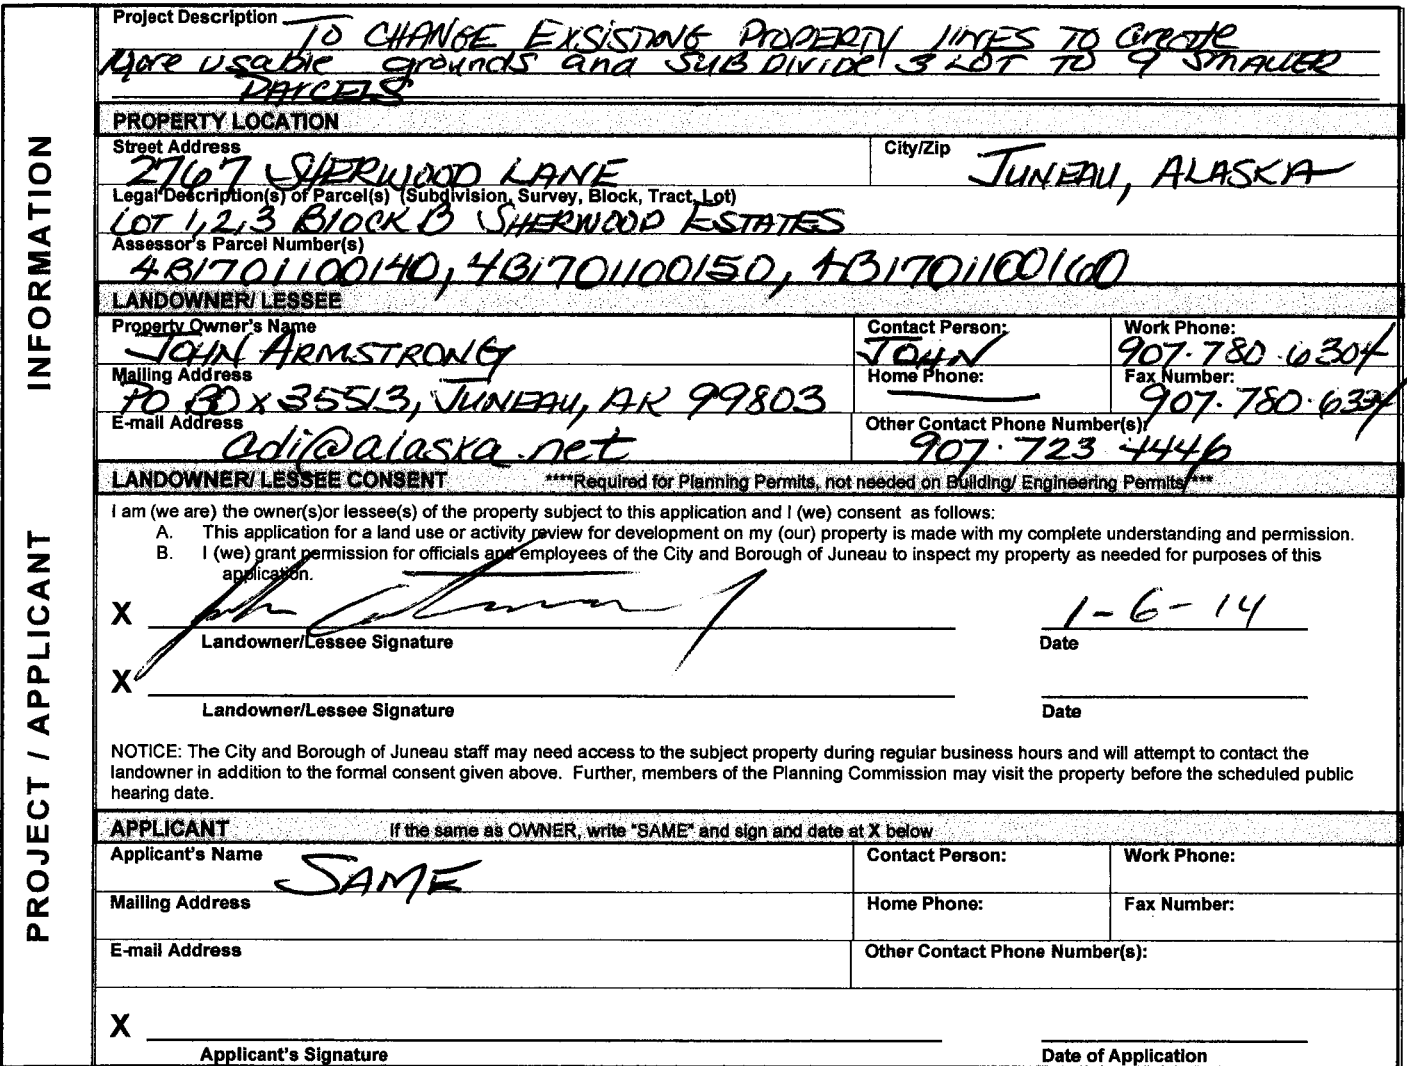 Project Description TO CHANGE EXSISTING PROPERTY LINES TO Create
More usable grounds and SUBDIVIDE 3 LOT TO 9 SMALLER
PARCELS
PROPERTY LOCATION
Street Address City/Zip
2767 SHERWOOD LANE JUNEAU, ALASKA
Legal Description(s) of Parcel(s) (Subdivision, Survey, Block, Tract, Lot)
LOT 1,2,3 BLOCK B SHERWOOD ESTATES
Assessor's Parcel Number(s)
4B1701100140, 4B1701100150, 4B1701100160
LANDOWNER/ LESSEE
Property Owner's Name Contact Person: Work Phone:
JOHN ARMSTRONG JOHN 907.780.6304
Mailing Address Home Phone: Fax Number:
PO BOX 35513, JUNEAU, AK 99803 907.780.6334
E-mail Address Other Contact Phone Number(s):
adi@alaska.net 907.723 4446
LANDOWNER/ LESSEE CONSENT ****Required for Planning Permits, not needed on Building/ Engineering Permits****
I am (we are) the owner(s)or lessee(s) of the property subject to this application and I (we) consent as follows:
A. This application for a land use or activity review for development on my (our) property is made with my complete understanding and permission.
B. I (we) grant permission for officials and employees of the City and Borough of Juneau to inspect my property as needed for purposes of this
application.
X 1-6-14
Landowner/Lessee Signature Date
X
Landowner/Lessee Signature Date
NOTICE: The City and Borough of Juneau staff may need access to the subject property during regular business hours and will attempt to contact the
landowner in addition to the formal consent given above. Further, members of the Planning Commission may visit the property before the scheduled public
hearing date.
APPLICANT If the same as OWNER, write "SAME" and sign and date at X below
Applicant's Name SAME Contact Person: Work Phone:
Mailing Address Home Phone: Fax Number:
E-mail Address Other Contact Phone Number(s):
X
Applicant's Signature Date of Application
PROJECT / APPLICANT INFORMATION